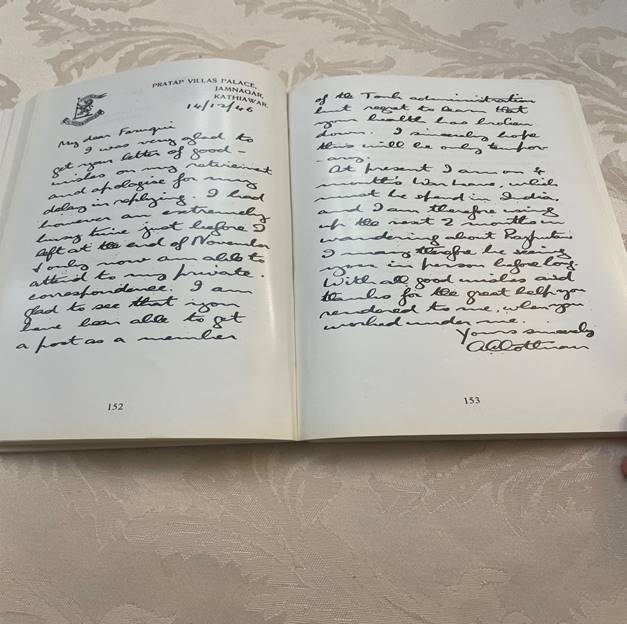 PRATAP VILLAS PALACE,
JAMNAGAR,
KATHIAWAR.
14/12/46
My dear Faruqui
I was very glad to
get your letter of good -
wishes on my retirement
and apologise for my
delay in replying. I had
however an extremely
busy time just before I
left at the end of November
& only now am able to
attend to my private
correspondence. I am
glad to see that you
have been able to get
a post as a member
152
of the Tonk administration
but regret to learn that
your health has broken
down. I sincerely hope
this will be only tempor
- ary.
At present I am on 4
month's War Leave, which
must be spent in India,
and I am therefore using
up the next 2 months in
wandering about
I may therefore be seeing
you in person before long.
With all good wishes and
thanks for the great help you
rendered to me, when you
worked under me.
Yours sincerely
153